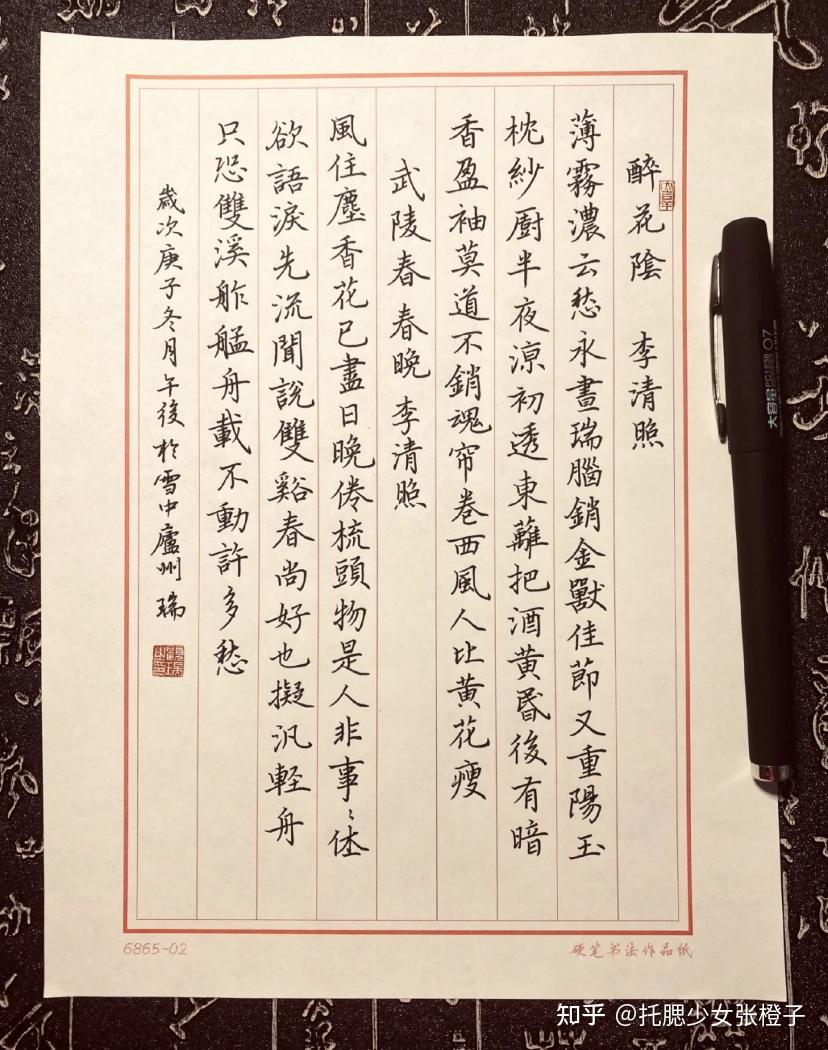 醉花陰 李清照
薄霧濃云愁永晝瑞腦銷金獸佳節又重陽玉
枕紗厨半夜涼初透東蘺把酒黄昏後有暗
香盈袖莫道不銷魂帘卷西風人比黄花瘦
武陵春 春晚 李清照
風住塵香花已盡日晚倦梳頭物是人非事〻休
欲語淚先流聞說雙谿春尚好也擬汎輕舟
只恐雙溪舴艋舟載不動許多愁
歲次庚子冬月午後於雪中廬州 瑞
6865-02
硬笔书法作品纸
大容量 PG1838 07
知乎 @托腮少女张橙子